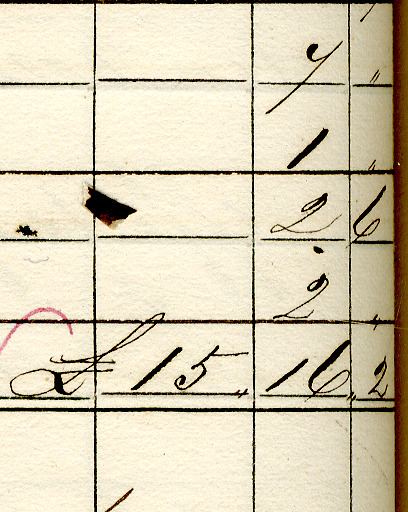 7 "
1 "
2 6
2 "
£ 15 " 16 " 2